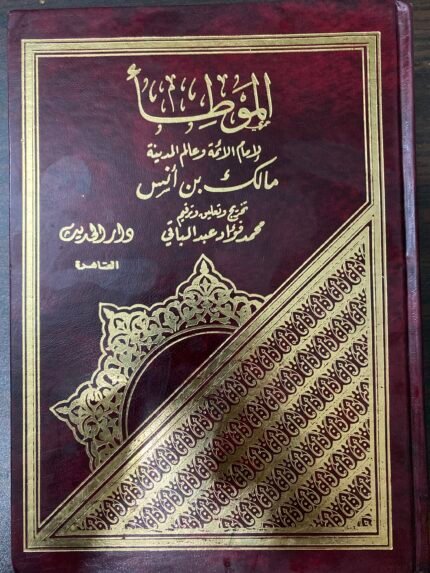 الموطأ
لإمام الأئمة وعالم المدينة
مالك بن أنس
تخريج وتعليق وترقيم
محمد فؤاد عبد الباقي
دار الحديث
القاهرة